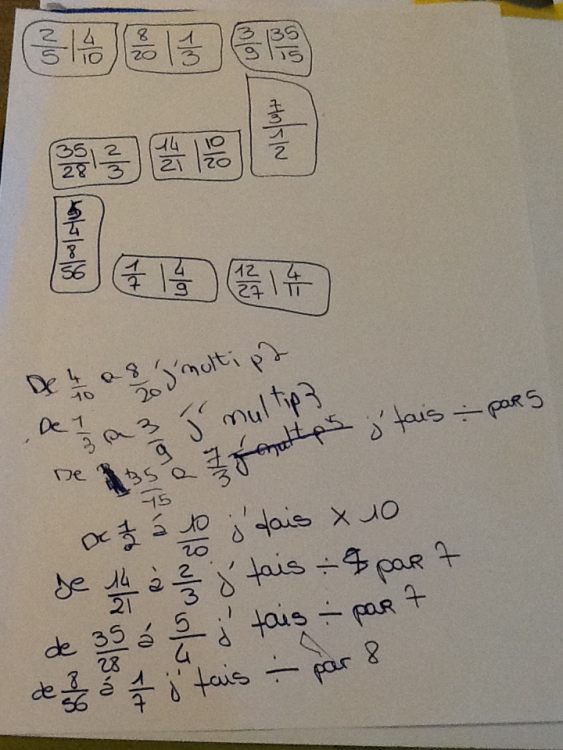 2/5 | 4/10 8/20 | 1/3 3/9 | 35/15
7/3
1/2
35/28 | 2/3 14/21 | 10/20
5/4
8/56
1/7 | 4/9 12/27 | 4/11
De 4/10 a 8/20 j'multip2
De 1/3 a 3/9 j' multip3
De 35/15 a 7/3 j'multip5 j'fais ÷ par 5
De 1/2 à 10/20 j'fais × 10
De 14/21 à 2/3 j'fais ÷ par 7
de 35/28 à 5/4 j'fais ÷ par 7
de 8/56 à 1/7 j'fais ÷ par 8